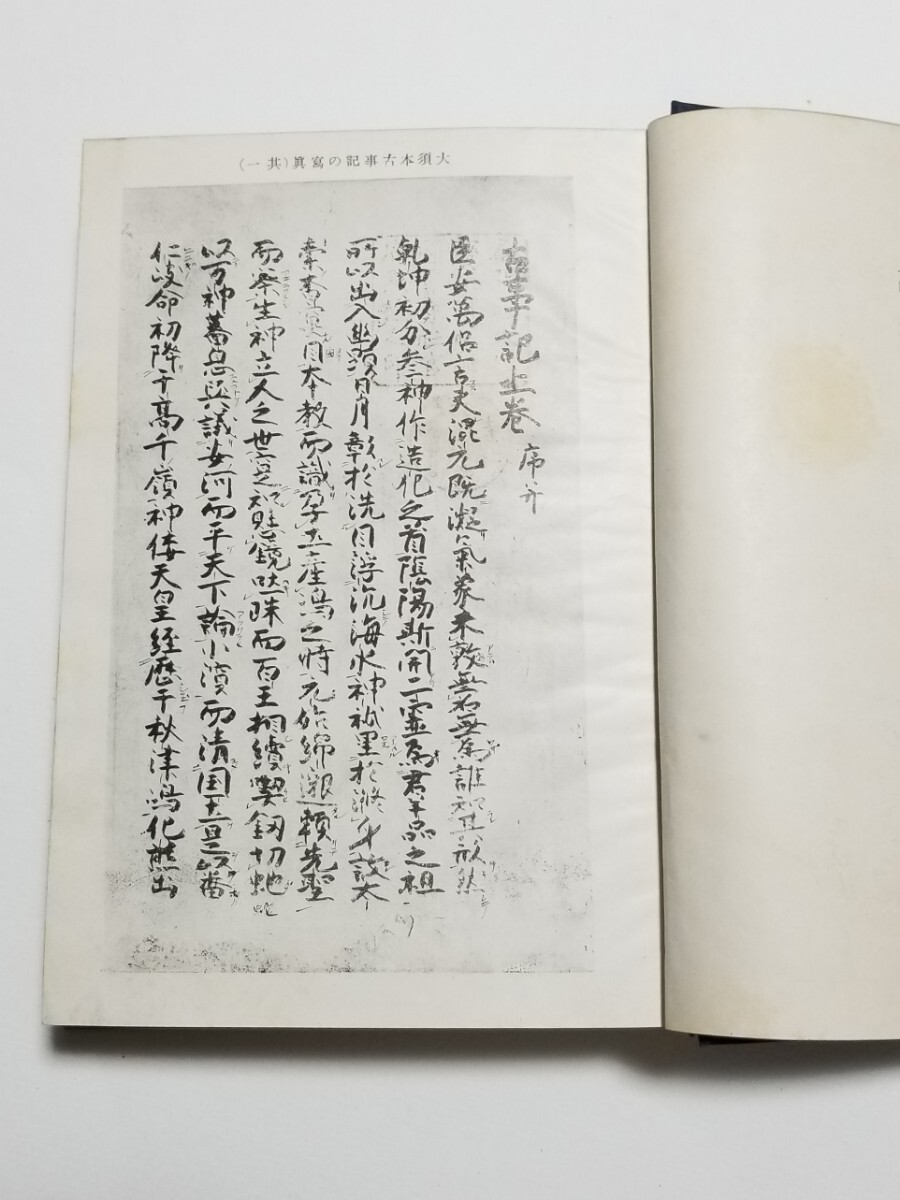 大須本古事記の寫眞(其一)
古事記上卷 序并
臣安萬侶言夫混元既凝氣象未敦無名無爲誰知其形然
乾坤初分參神作造化之首陰陽斯開二靈爲群品之祖
所以出入幽顯日月彰於洗目浮沉海水神祇呈於滌身故太
素杳冥因本教而識孕土產嶋之時元始綿邈頼先聖
而察生神立人之世寔知懸鏡吐珠而百王相續喫釼切蛇
以万神蕃息與議安河而平天下論小濱而清国土是以番
仁岐命初降于高千嶺神倭天皇経歷于秋津嶋化熊出